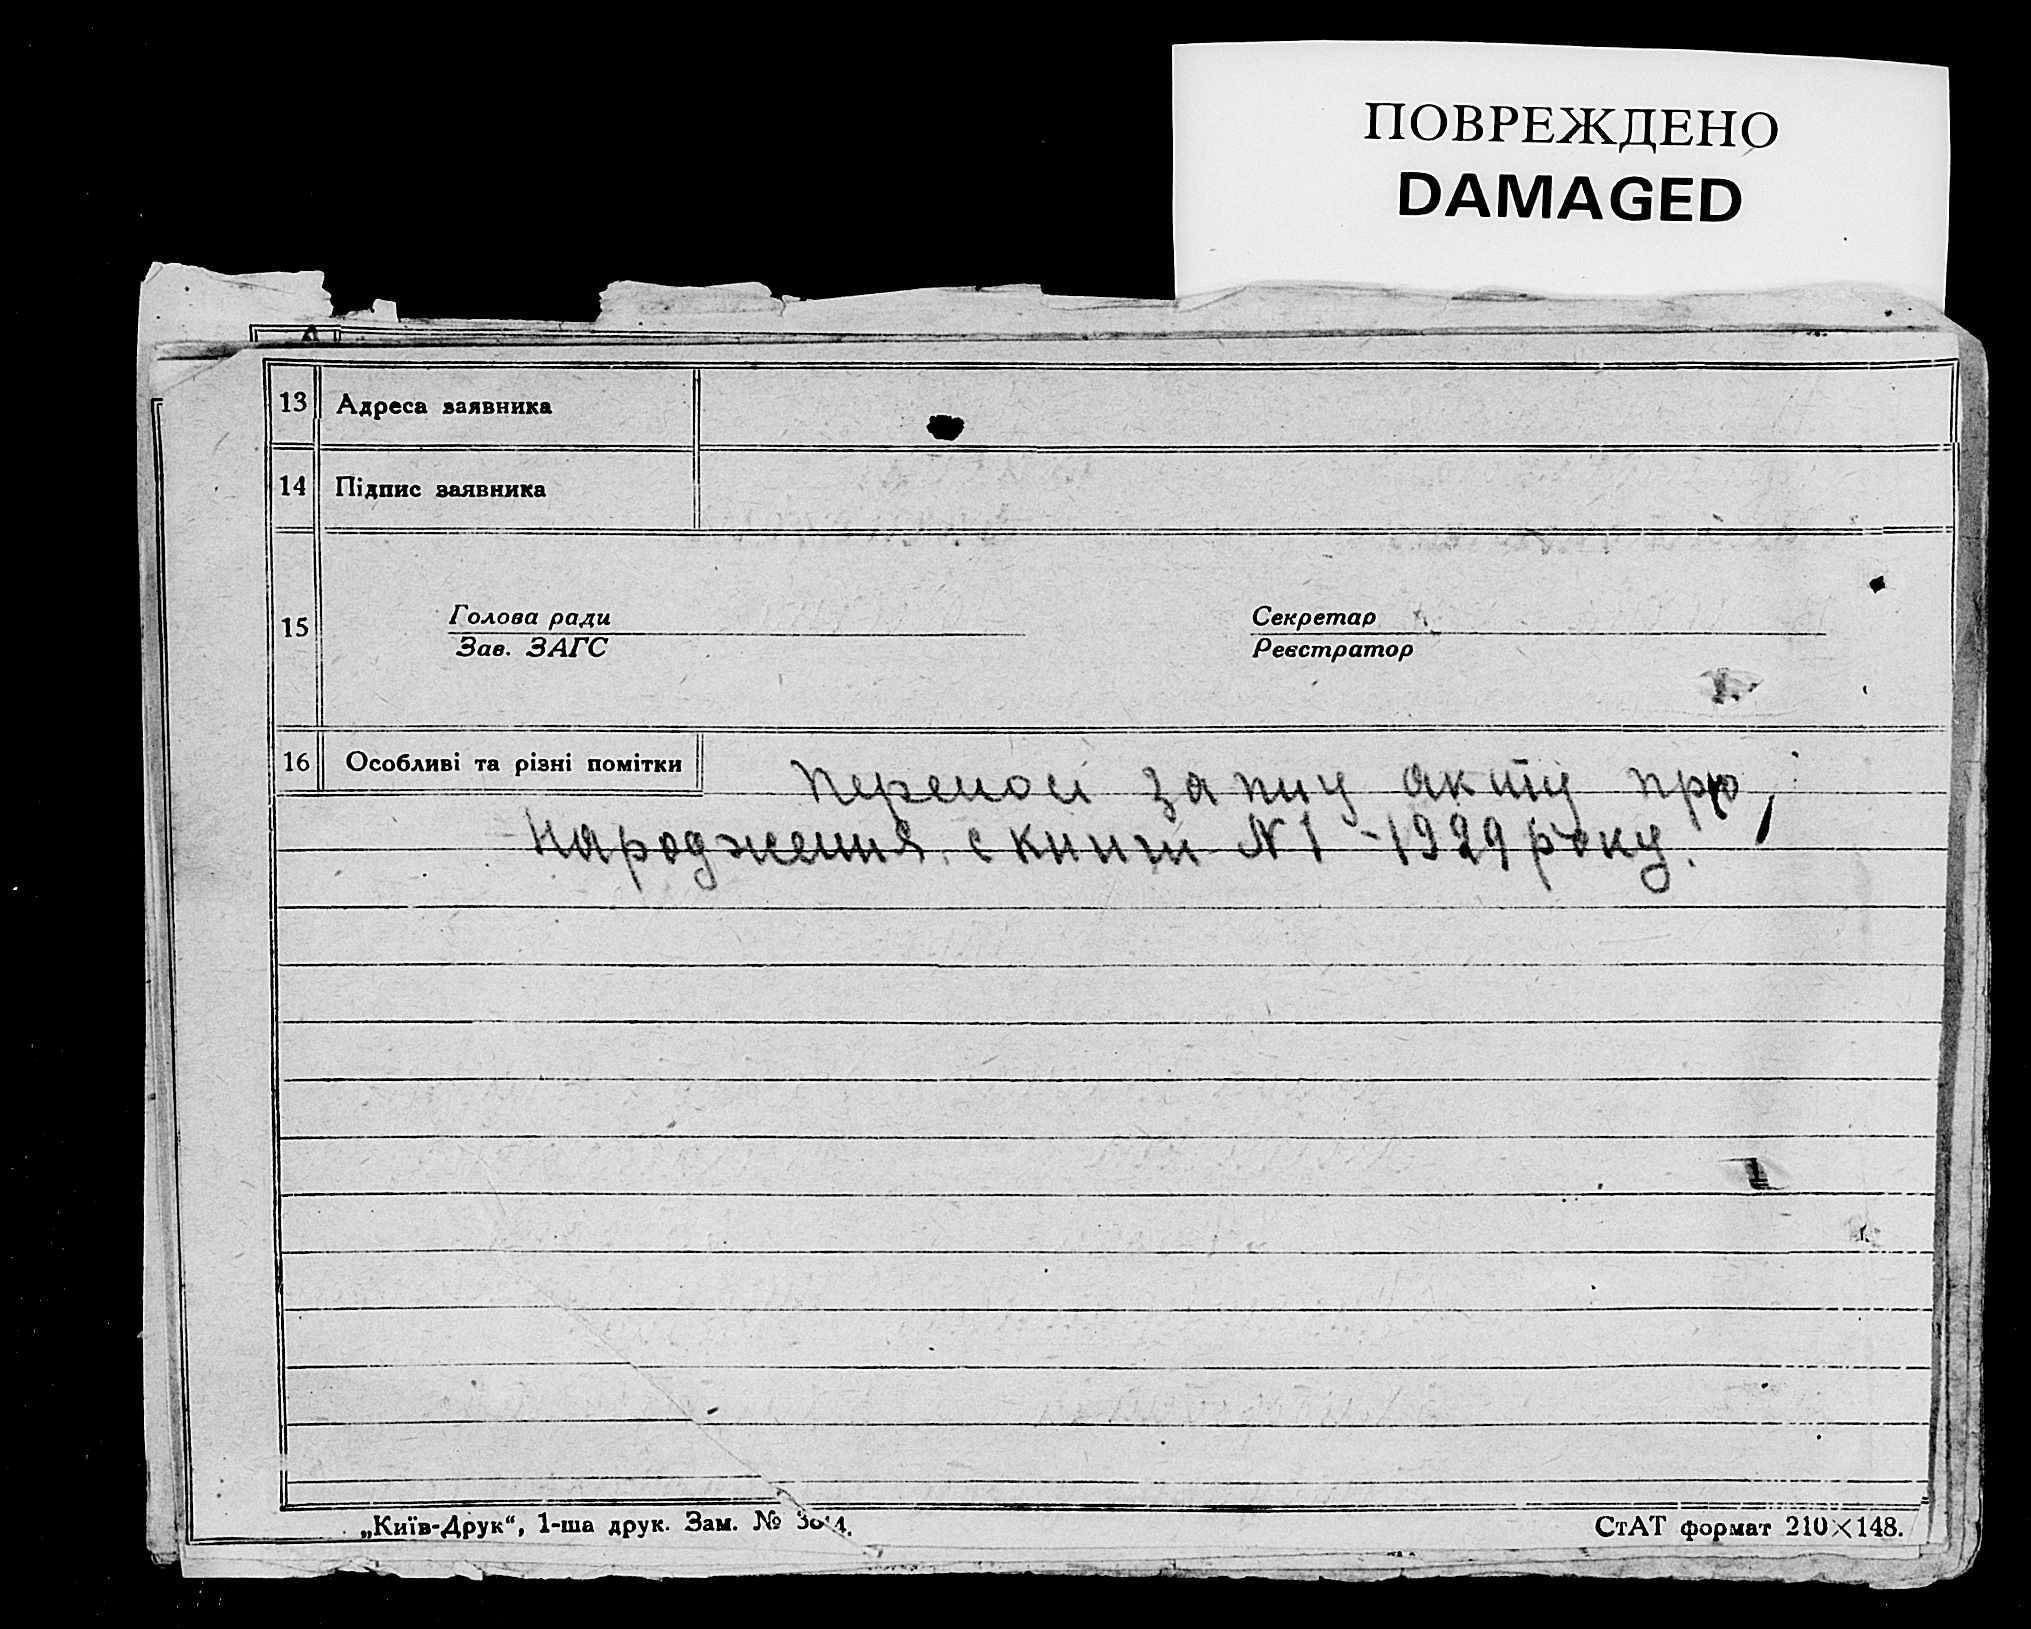 ПОВРЕЖДЕНО
DAMAGED
13 Адреса заявника
14 Підпис заявника
15 Голова ради Секретар
Зав. ЗАГС Реєстратор
16 Особливі та різні помітки
запису акту про
народження с книги N 1 - 1929 року.
„Київ-Друк“, 1-ша друк. Зам. №
СтАТ формат 210×148.